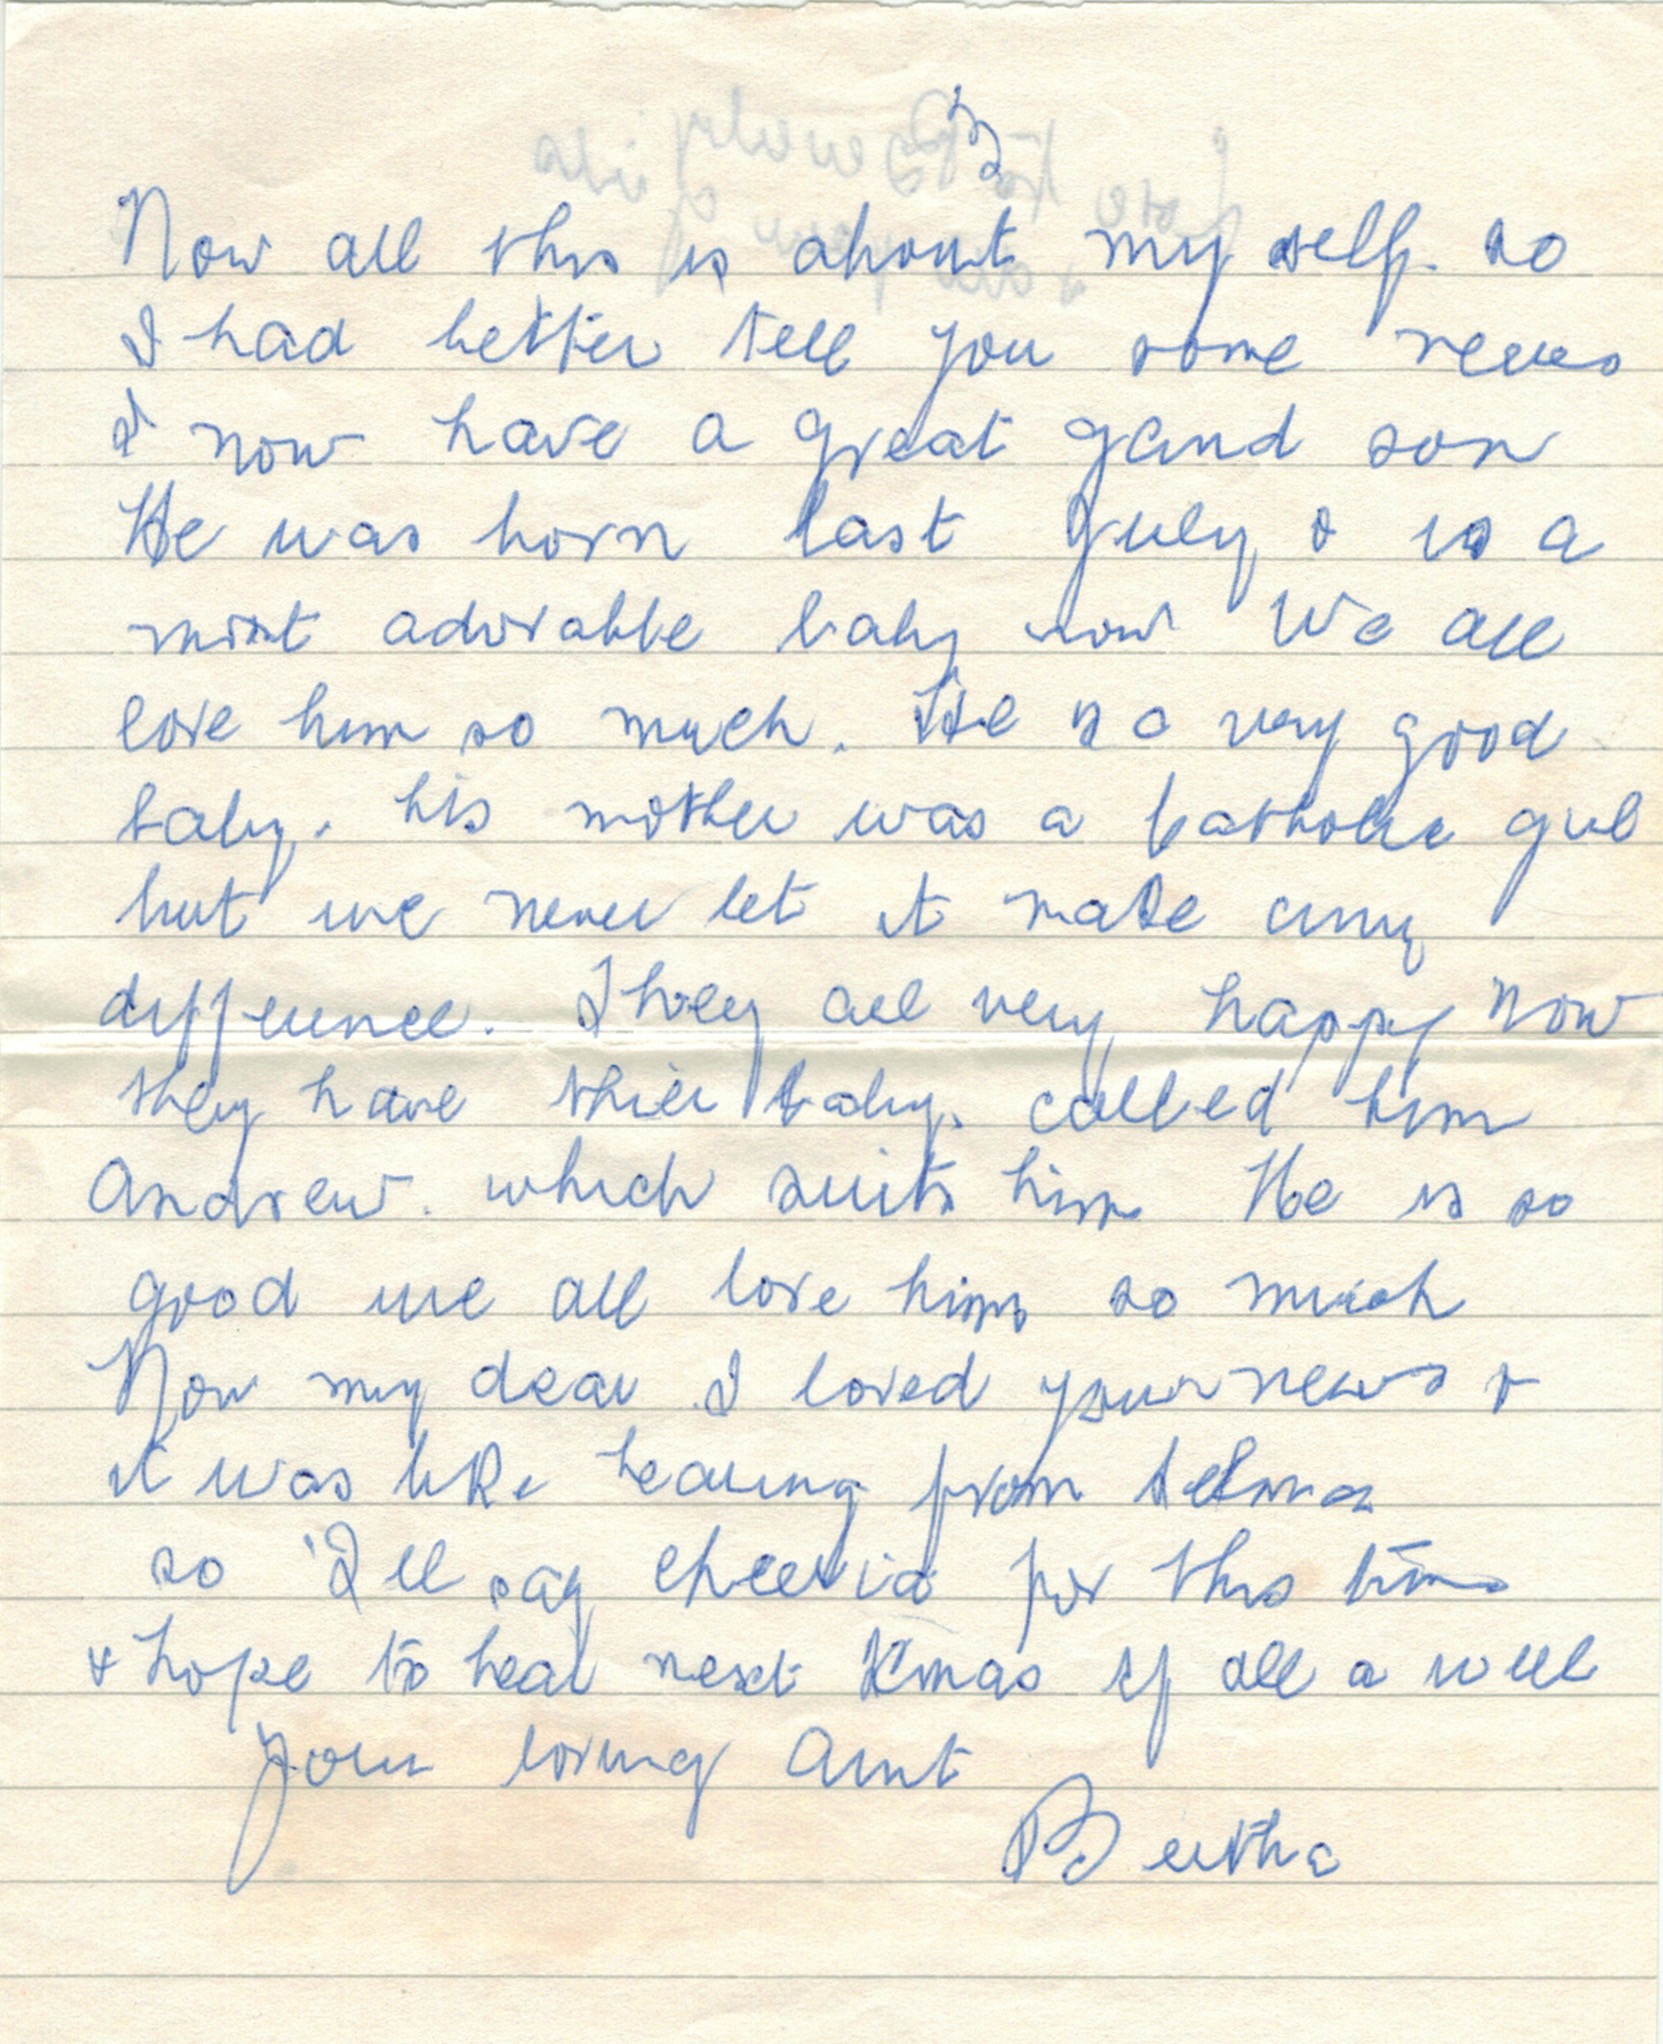 3
Now all this is about my self. so
I had better tell you some news
I now have a great gand son
He was born last July & is a
most adorable baby now We all
love him so much. He is a very good
baby. his mother was a Catholic girl
but we never let it make any
diffeernce. They all very happy now
they have thier baby. called him
Andrew. which suits him He is so
good we all love him so much
Now my dear I loved your news &
it was like hearing from Selma
so I'll say cheerio for this time
& hope to hear next Xmas if all a well
Your loving Aunt
Bertha